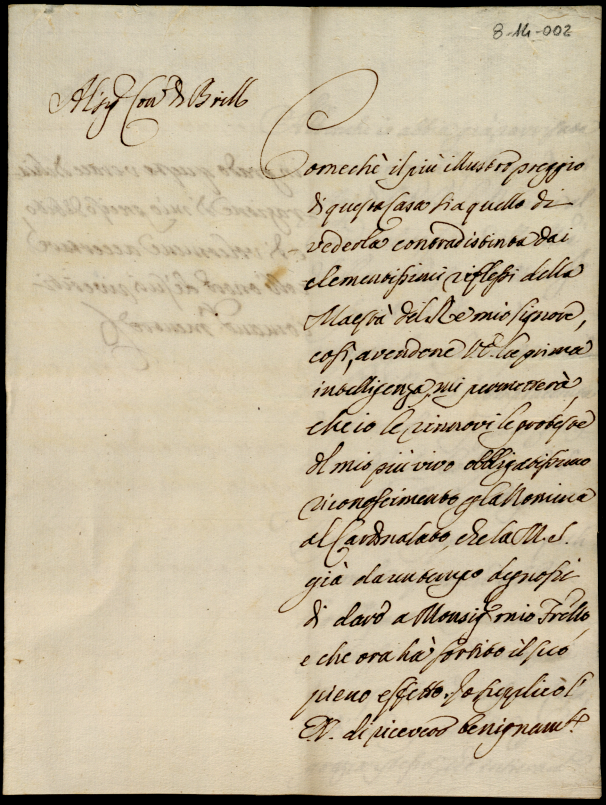 8-14-002
Al Sig.r Con.e di Brill
Comechè il più illustre preggio
di questa Casa sia quello di
vedersi contradistinta dai
clementissimi riflessi della
Maestà del Re mio Signore,
così, avendone V.E. la prima
intelligenza, mi permetterà
che io le rinnovi le proteste
del mio più vivo obbligatissimo
riconoscimento p la Nomina
al Cardinalato, che la M. S.
già da un tempo degnossi
di dare a Monsig.r mio Frēllo,
e che ora hà sortito il suo
pieno effetto. Io supplico l'
E.V. di ricevere benignam.te